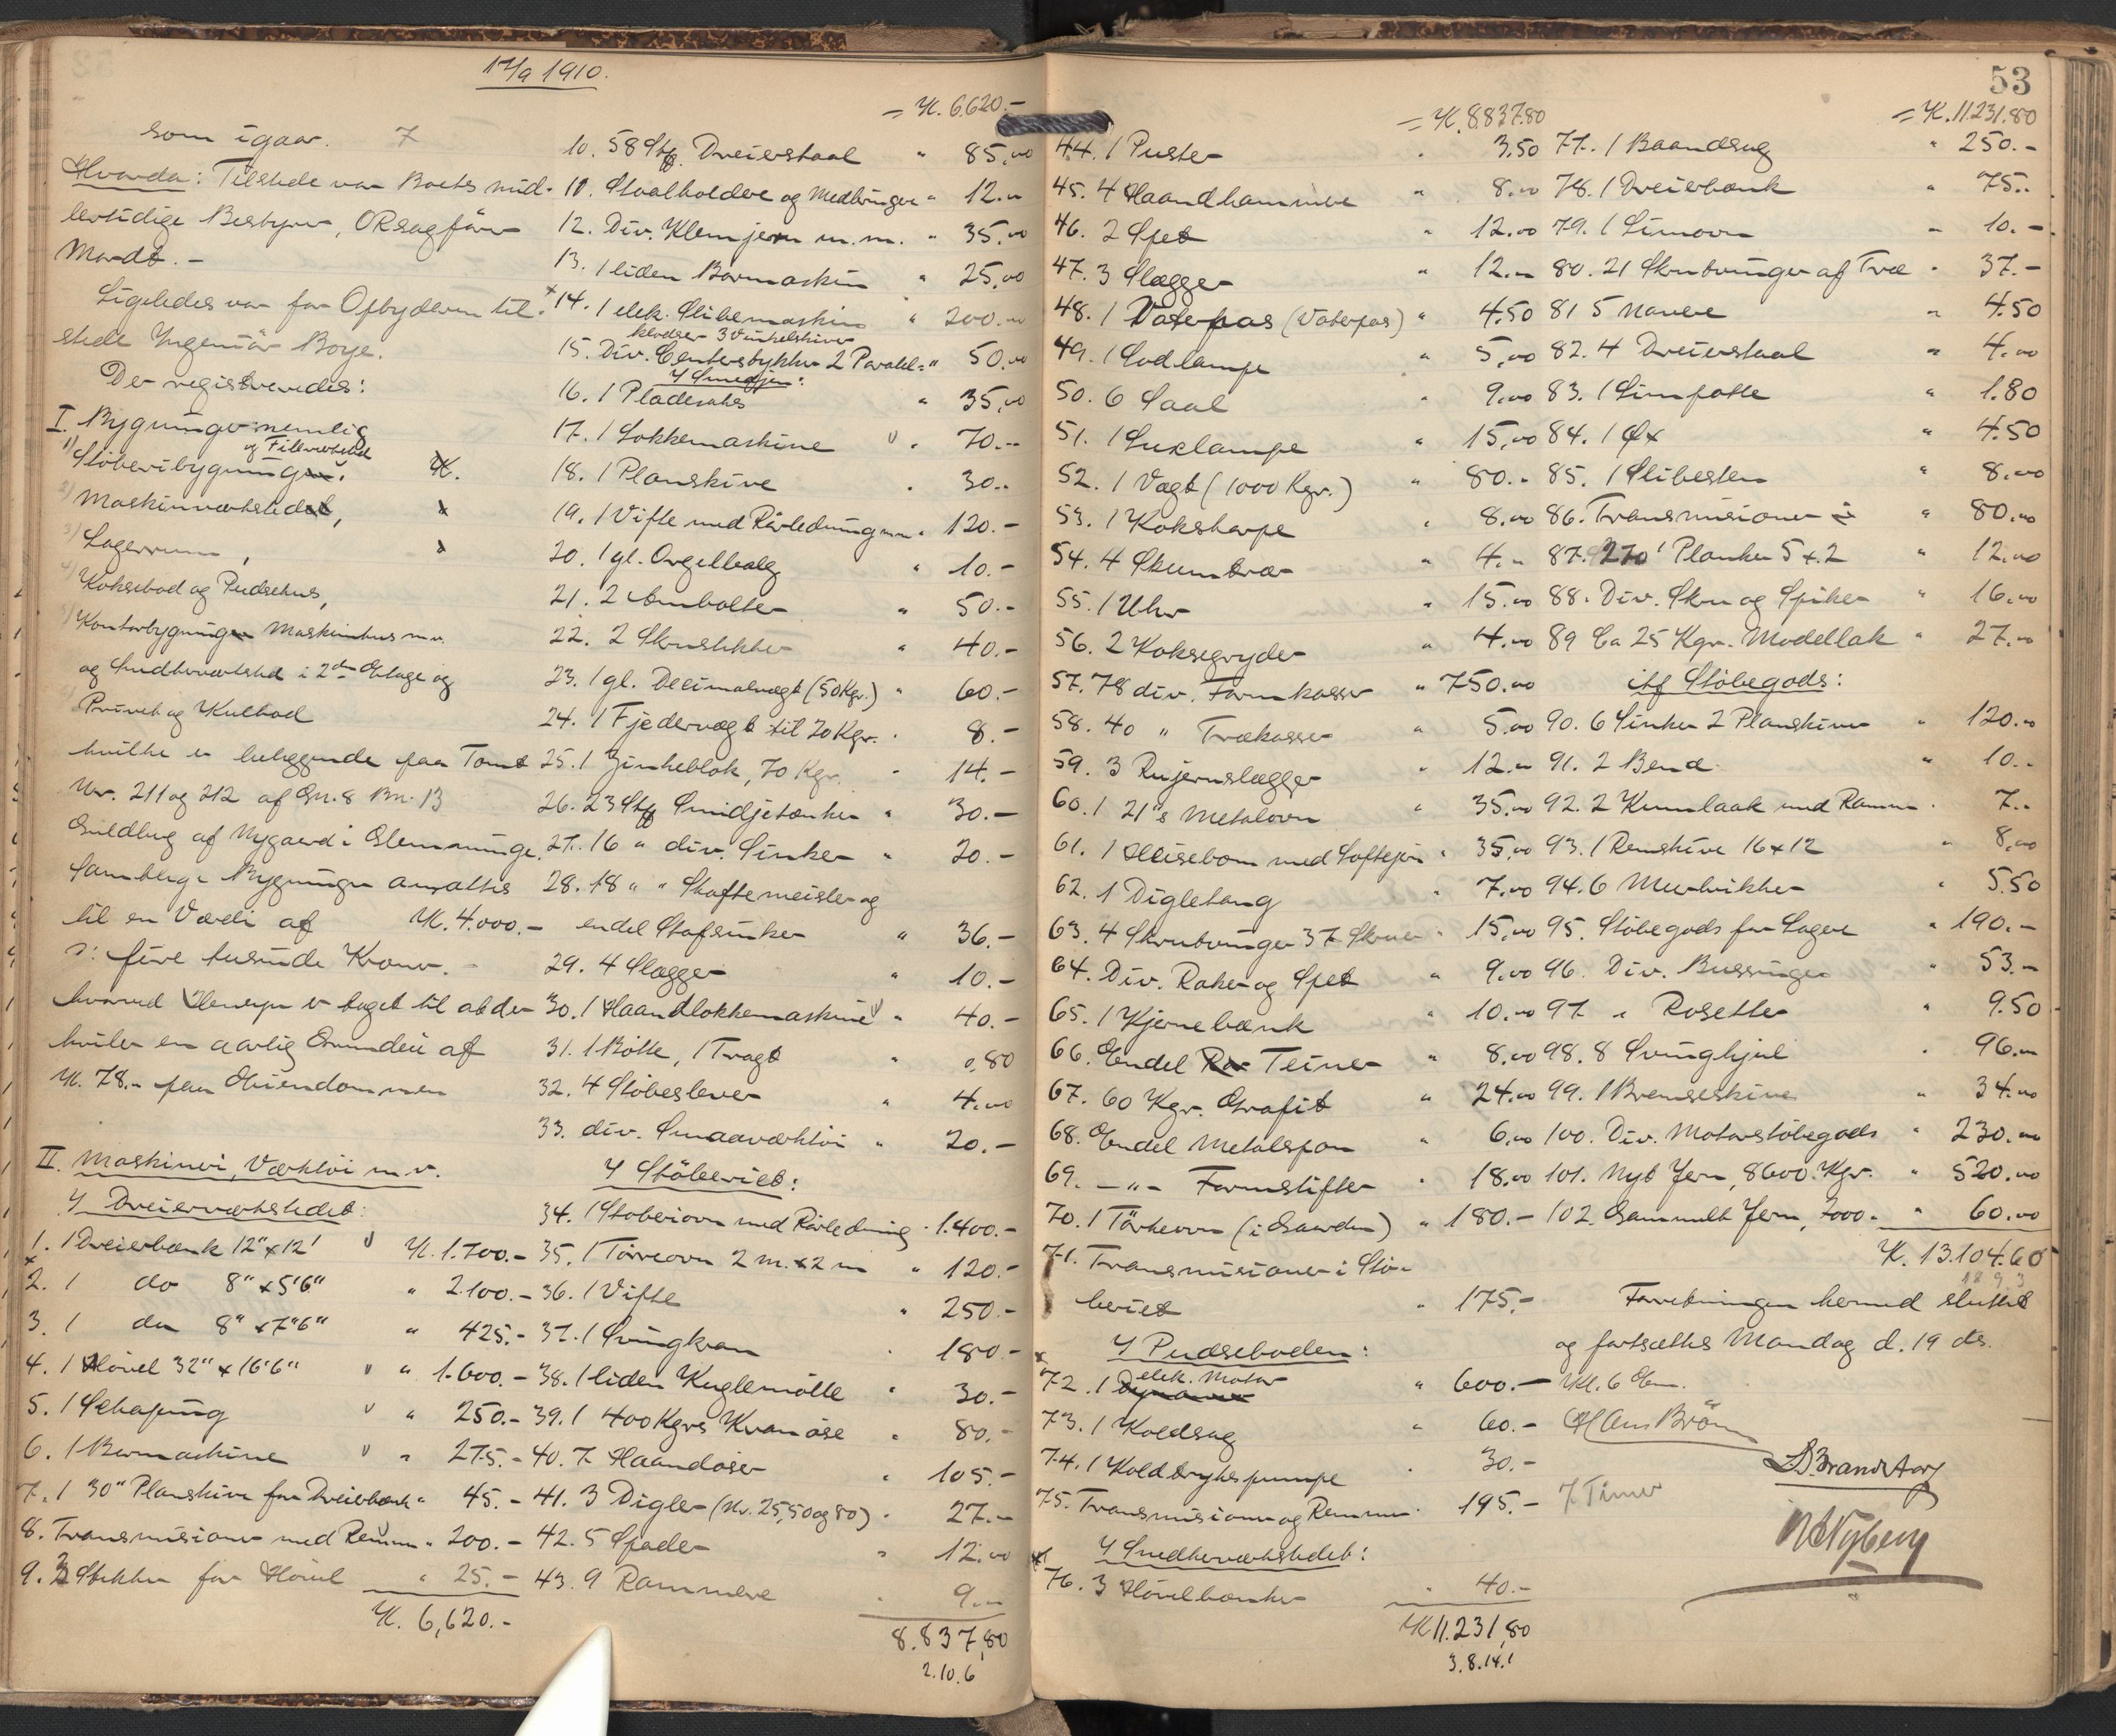 17/9 1910.
som igaar. 7
Hvorda: Tilstede var Boets mid-
lertidige Bestyrer, ORsagfører
Mordt. -
Ligeledes var for Opbyderen til-
stede Ingeniør Boye.
Der registreredes:
I. Bygninger nemlig
og Filerverksted
1) Støberibygning K.
2) Maskinværksted,
3) Lagerrum,
4) Koksebod og Pudsehus,
5) Kontorbygning Maskinhus m.v.
og Snedkerværksted i 2den Etage og
Privet og Kulbod
hvilke er beliggende paa Tomt
Nr. 211 og 212 af Gn. 8 Bn. 13
Guldberg af Nygaard i Glemminge.
Samtlige Bygninger ansattes
til en Værdi af K. 4.000.-
ɔ: fire tusinde Kroner. -
hvorved Hensyn er taget til at der
hviler en aarlig Grundleie af
K. 78.- paa Eiendommen
II. Maskineri, Værktøi m.v.
I Dreierværkstedet:
1. 1 Dreierbænk 12" x 12' K. 1.700.-
2. 1 do 8" x 5'6" " 2.100.-
3. 1 do 8" x 7'6" " 425.-
4. 1 Høvel 32" x 16'6" " 1.600.-
5. 1 Schaping " 250.-
6. 1 Bormaskine " 275.-
7. 1 30" Planskive for Dreierbænk " 45.-
8. Transmisioner med Remmer " 200.-
9. 3 Stikker for Høvel " 25.-
K. 6,620.-
= K. 6.620.-
10. 58 Stk. Dreierstaal " 85,00
11. Staalholdere og Medbringere " 12.00
12. Div. Klemjern m.m. " 35,00
13. 1 liden Bormaskin " 25,00
14. 1 elek. Slibemaskin " 200.00
klodser 3 Vinkelskiver
15. Div. Centerstykker 2 Paralel- " 50,00
I Smedjen:
16. 1 Pladesaks " 35,00
17. 1 Lokkemaskine " 70.--
18. 1 Planskive " 30.-
19. 1 Vifte med Rørledning m.m. " 120.-
20. 1 gl. Orgelbælg " 10.-
21. 2 Ambolter " 50.-
22. 2 Skrustikker " 40.-
23. 1 gl. Decimalvægt (50 Kgr.) " 60.-
24. 1 Fjedervægt til 20 Kgr. " 8.-
25. 1 Zinkeblok, 70 Kgr. " 14.-
26. 23 Stk Smidjetænker " 30.-
27. 16 " div. Sinker " 20.-
28. 18 " " Skaftemeisler og
endel Stafsinker " 36.-
29. 4 Slægger " 10.-
30. 1 Haandlokkemaskine " 40.-
31. 1 Bøtte, 1 Tragt " 0,80
32. 4 Støbeslever " 4.00
33. div. Smaaværktøi " 20.-
I Støberiet:
34. 1 Støberiovn med Rørledning " 1.400.-
35. 1 Tørreovn 2 m. x 2 m " 120.-
36. 1 Vifte " 250.-
37. 1 Svingkran " 180.-
38. 1 liden Kuglemølle " 30.-
39. 1 400 Kgrs Kranøse " 80.-
40. 7 Haandøser " 105.-
41. 3 Digler (Nr. 25, 50 og 80) " 27.-
42. 5 Spader " 12.00
43. 9 Rammere " 9.--
8.837,80
2.10.6
53
= K. 8.837.80
44. 1 Puster " 3.50
45. 4 Haandhammere " 8.00
46. 2 Spet " 12.00
47. 3 Slægger " 12.-
48. 1 Vaterpas (Vaterpas) " 4.50
49. 1 Lodlampe " 5,00
50. 6 Saal " 9.00
51. 1 Luxlampe " 15,00
52. 1 Vægt (1000 Kgr.) " 80.-
53. 1 Koksharpe " 8.00
54. 4 Skumtrær " 4.-
55. 1 Uhr " 15.00
56. 2 Koksegryder " 4.00
57. 78 div. Formkasser " 750.00
58. 40 " Trækasser " 5.00
59. 3 Rujernslægger " 12.00
60. 1 21"s Metalovn " 35.00
61. 1 Heisebom med Løftejern " 35,00
62. 1 Digletang " 7.00
63. 4 Skrutvinger 37 Skruer " 15,00
64. Div. Raker og Spet " 9.00
65. 1 Kjernebænk " 10.00
66. Endel Teiner " 8.00
67. 60 Kgr. Grafit " 24.00
68. Endel Metalspon " 6.00
69. -"- Formstifter " 18.00
70. 1 Tørkeovn (i Gaarden) " 180.-
71. Transmisioner i Stø-
beriet " 175.-
I Pudseboden:
elek. Motor
72. 1 Dynamo " 600.-
73. 1 Koldsag " 60.-
74. 1 Koldtrykspumpe " 30.-
75. Transmisioner og Remmer " 195.-
I Snedkerværkstedet:
76. 3 Høvelbænker " 40.-
K 11.231,80
3.8.14.1
= K. 11.231.80
77. 1 Baandsag " 250.-
78. 1 Dreierbænk " 75.-
79. 1 Limovn " 10.-
80. 21 Skrutvinger af Træ " 37.-
81 5 Navere " 4.50
82. 4 Dreierstaal " 4.00
83. 1 Limpotte " 1.80
84. 1 Øx " 4.50
85. 1 Slibesten " 8.00
86. Transmisioner " 80.00
87. 270' Planker 5 x 2 " 12.00
88. Div. Skru og Spiker " 16.00
89 Ca 25 Kgr. Modellak " 27.00
Støbegods:
90. 6 Sinker 2 Planskiver " 120.00
91. 2 Bend " 10.-
92. 2 Kumlaak med Ramme " 7.-
93. 1 Remskive 16 x 12 " 8,00
94. 6 Murtrikker " 5.50
95. Støbegods for Lager " 190.-
96. Div. Bussinger " 53.-
97 " Rosetter " 9.50
98. 8 Svinghjul " 96.00
99. 1 Bremseskive " 34.00
100. Div. Motorstøbegods " 230.00
101. Nyt Jern, 8600 Kgr. " 520.00
102. Gammelt Jern, 7000 " " 60.00
K. 13.104.60
1893
Forretningen hermed sluttet
og fortsættes Mandag d. 19 ds.
Kl. 6 Em.
Hans Brøn
7 Timer